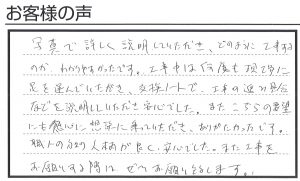 お客様の声
写真で詳しく説明していただき、どのように工事する
のか わかりやすかったです。工事中は何度も現場に
足を運んでいただき、交換ノートで、工事の進み具合
などを説明していただき安心でした。またこちらの要望
にも熱心に相談に乗っていただき、ありがたかったです。
職人の方の人柄が良く、安心でした。また工事を
お願いする際は、ぜひお願いします。